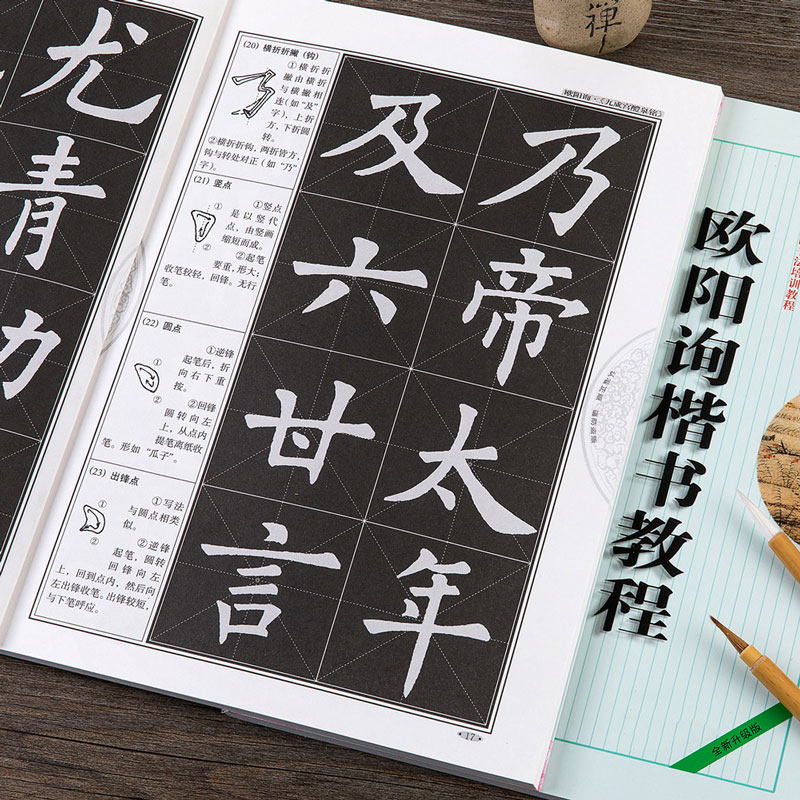 尤
青
力
(20) 横折折撇（钩）
①横折折
撇由横折
与横撇相
连（如“及”
字），上折
方，下折圆
转。
②横折折钩，两折皆方，
钩与转处对正（如“乃”
字）。
(21) 竖点
①
②
①竖点
是以竖代
点，由竖画
缩短而成。
②起笔
要重，形大；
收笔较轻，回锋。无行
笔。
(22) 圆点
①
②
①逆锋
起笔后，折
向右下重
按。
②回锋
圆转向左
上，从点内
提笔离纸收
笔。形如“瓜子”。
(23) 出锋点
①
②
①写法
与圆点相类
似。
②逆锋
起笔，圆转
回锋向左
上，回到点内，然后向
左出锋收笔。出锋较短，
与下笔呼应。
欧阳询·《九成宫醴泉铭》
乃帝太年
及六廿言
17
禅
法培训教程
欧阳询楷书教程
全新升级版